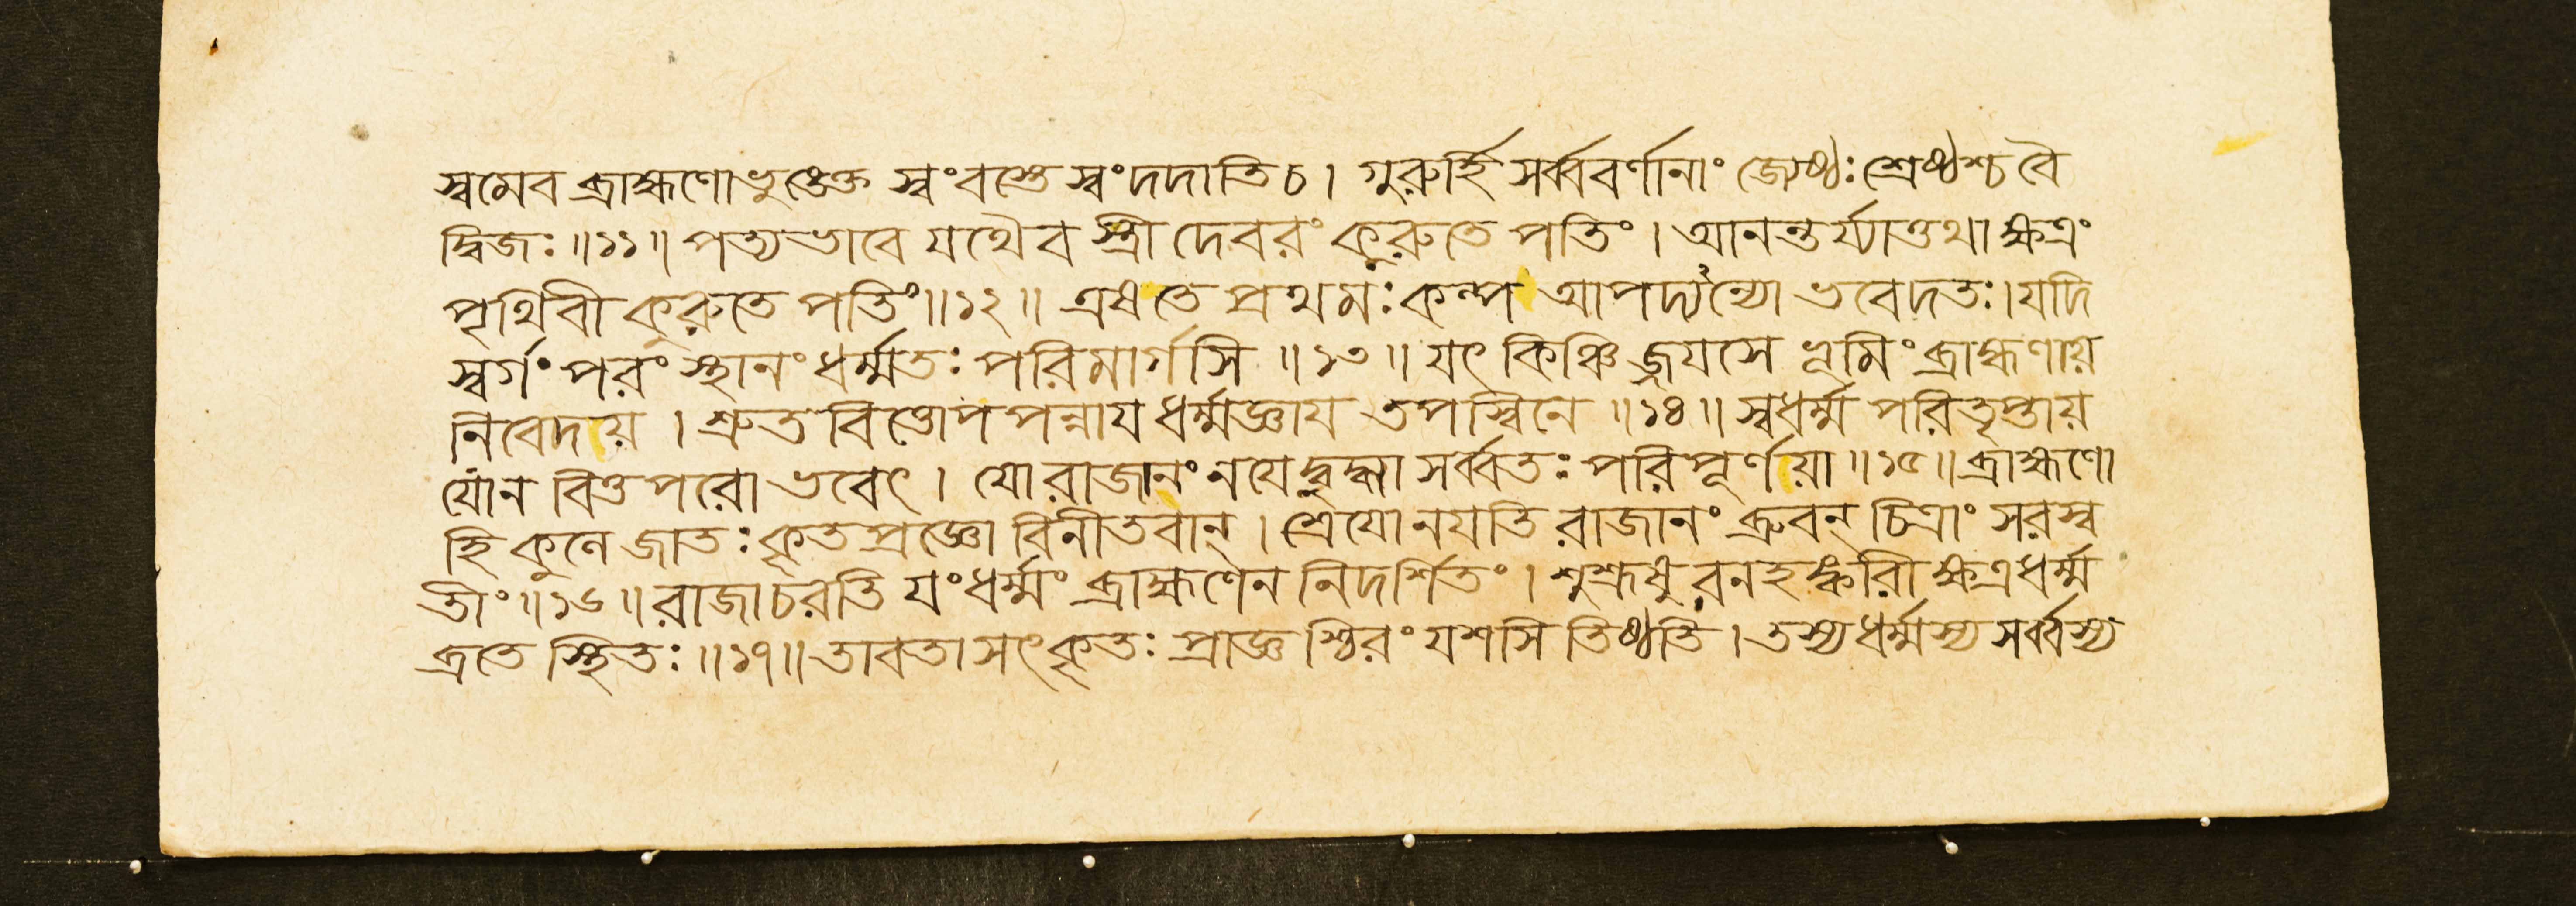 স্বমেব ব্রাহ্মণো ভুঙেক্ত স্বংবস্তে স্বংদদাতি চ । গুরুর্হি সর্ব্ববর্ণানাং জ্যেষ্ঠঃ শ্রেষ্ঠশ্চ বৈ
দ্বিজঃ ॥১১॥ পত্যভাবে যথৈব স্ত্রী দেবরং কুরুতে পতিং । আনন্তর্য্যাত্তথা ক্ষত্রং
পৃথিবী কুরুতে পতিং ॥১২॥ এষ তে প্রথমঃ কল্প আপদ্যন্যো ভবেদতঃ । যদি
স্বর্গং পরং স্থানং ধর্ম্মতঃ পরিমার্গসি ॥১৩॥ যৎ কিঞ্চিজ্জয়সে ভূমিং ব্রাহ্মণায়
নিবেদয় । শ্রুতবিত্তোপপন্নায ধর্ম্মজ্ঞায তপস্বিনে ॥১৪॥ স্বধর্ম্ম পরিতৃপ্তায়
যোন বিত্তপরো ভবেৎ । যো রাজানং নযেদ্বুদ্ধ্যা সর্ব্বতঃ পরিপূর্ণয়া ॥১৫॥ ব্রাহ্মণো
হি কুলে জাতঃ কৃতপ্রজ্ঞো বিনীতবান্ । শ্রেযো নযতি রাজানং ব্রুবন্ চিত্রাং সরস্ব
তীং ॥১৬॥ রাজা চরতি যং ধর্ম্মং ব্রাহ্মণেন নিদর্শিতং । শুশ্রূষুরনহঙ্কারী ক্ষত্রধর্ম্ম
ব্রতে স্থিতঃ ॥১৭॥ তাবতা সৎকৃতঃ প্রাজ্ঞ শ্চিরং যশসি তিষ্ঠতি । তস্য ধর্ম্মস্য সর্ব্বস্য